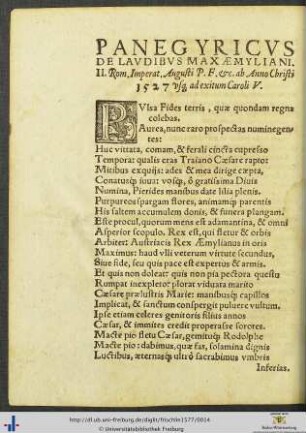 PANEGYRICVS
DE LAVDIBVS MAXÆMYLIANI.
II. Rom, Imperat, Augusti P. F. &c. ab Anno Christi
1527 usq, ad exitum Caroli V.
PVlsa Fides terris, quæ quondam regna
colebas,
Aurea, nunc raro prospectas numine gentes:
Huc vittata, comam, & ferali cincta cupresso
Tempora: qualis eras Traiano Cæsare rapto:
Mitibus exquijs: ades & mea dirige cœpta,
Conatusq́; iuua: vosq́;, ô gratissima Diuis
Numina, Pierides manibus date lilia plenis.
Purpureos spargam flores, animamq́; parentis
His saltem accumulem donis, & funera plangam.
Est procul, quorum mens est adamantina, & omni
Asperior scopulo. Rex est, qui fletur & orbis
Arbiter: Austriacis Rex Æmylianus in oris
Maximus: haud vlli veterum virtute secundus,
Siue fide, seu quis pace est expertus & armis.
Et quis non doleat: quis non pia pectora questu
Rumpat inexpleto: plorat viduata marito
Cæsare prælustris Marie: manibusq́; capillos
Implicat, & sanctum conspergit puluere vultum.
Ipse etiam celeres genitoris filius annos
Cæsar, & immites credit properasse sorores.
Macte pio fletu Cæsar, gemituq́; Rodolphe
Macte pio: dabimus, quæ fas, solamina dignis
Luctibus, æternasq́; vltrò sacrabimus vmbris
Inferias.
http://dl.ub.uni-freiburg.de/diglit/frischlin1577/0014
© Universitätsbibliothek Freiburg